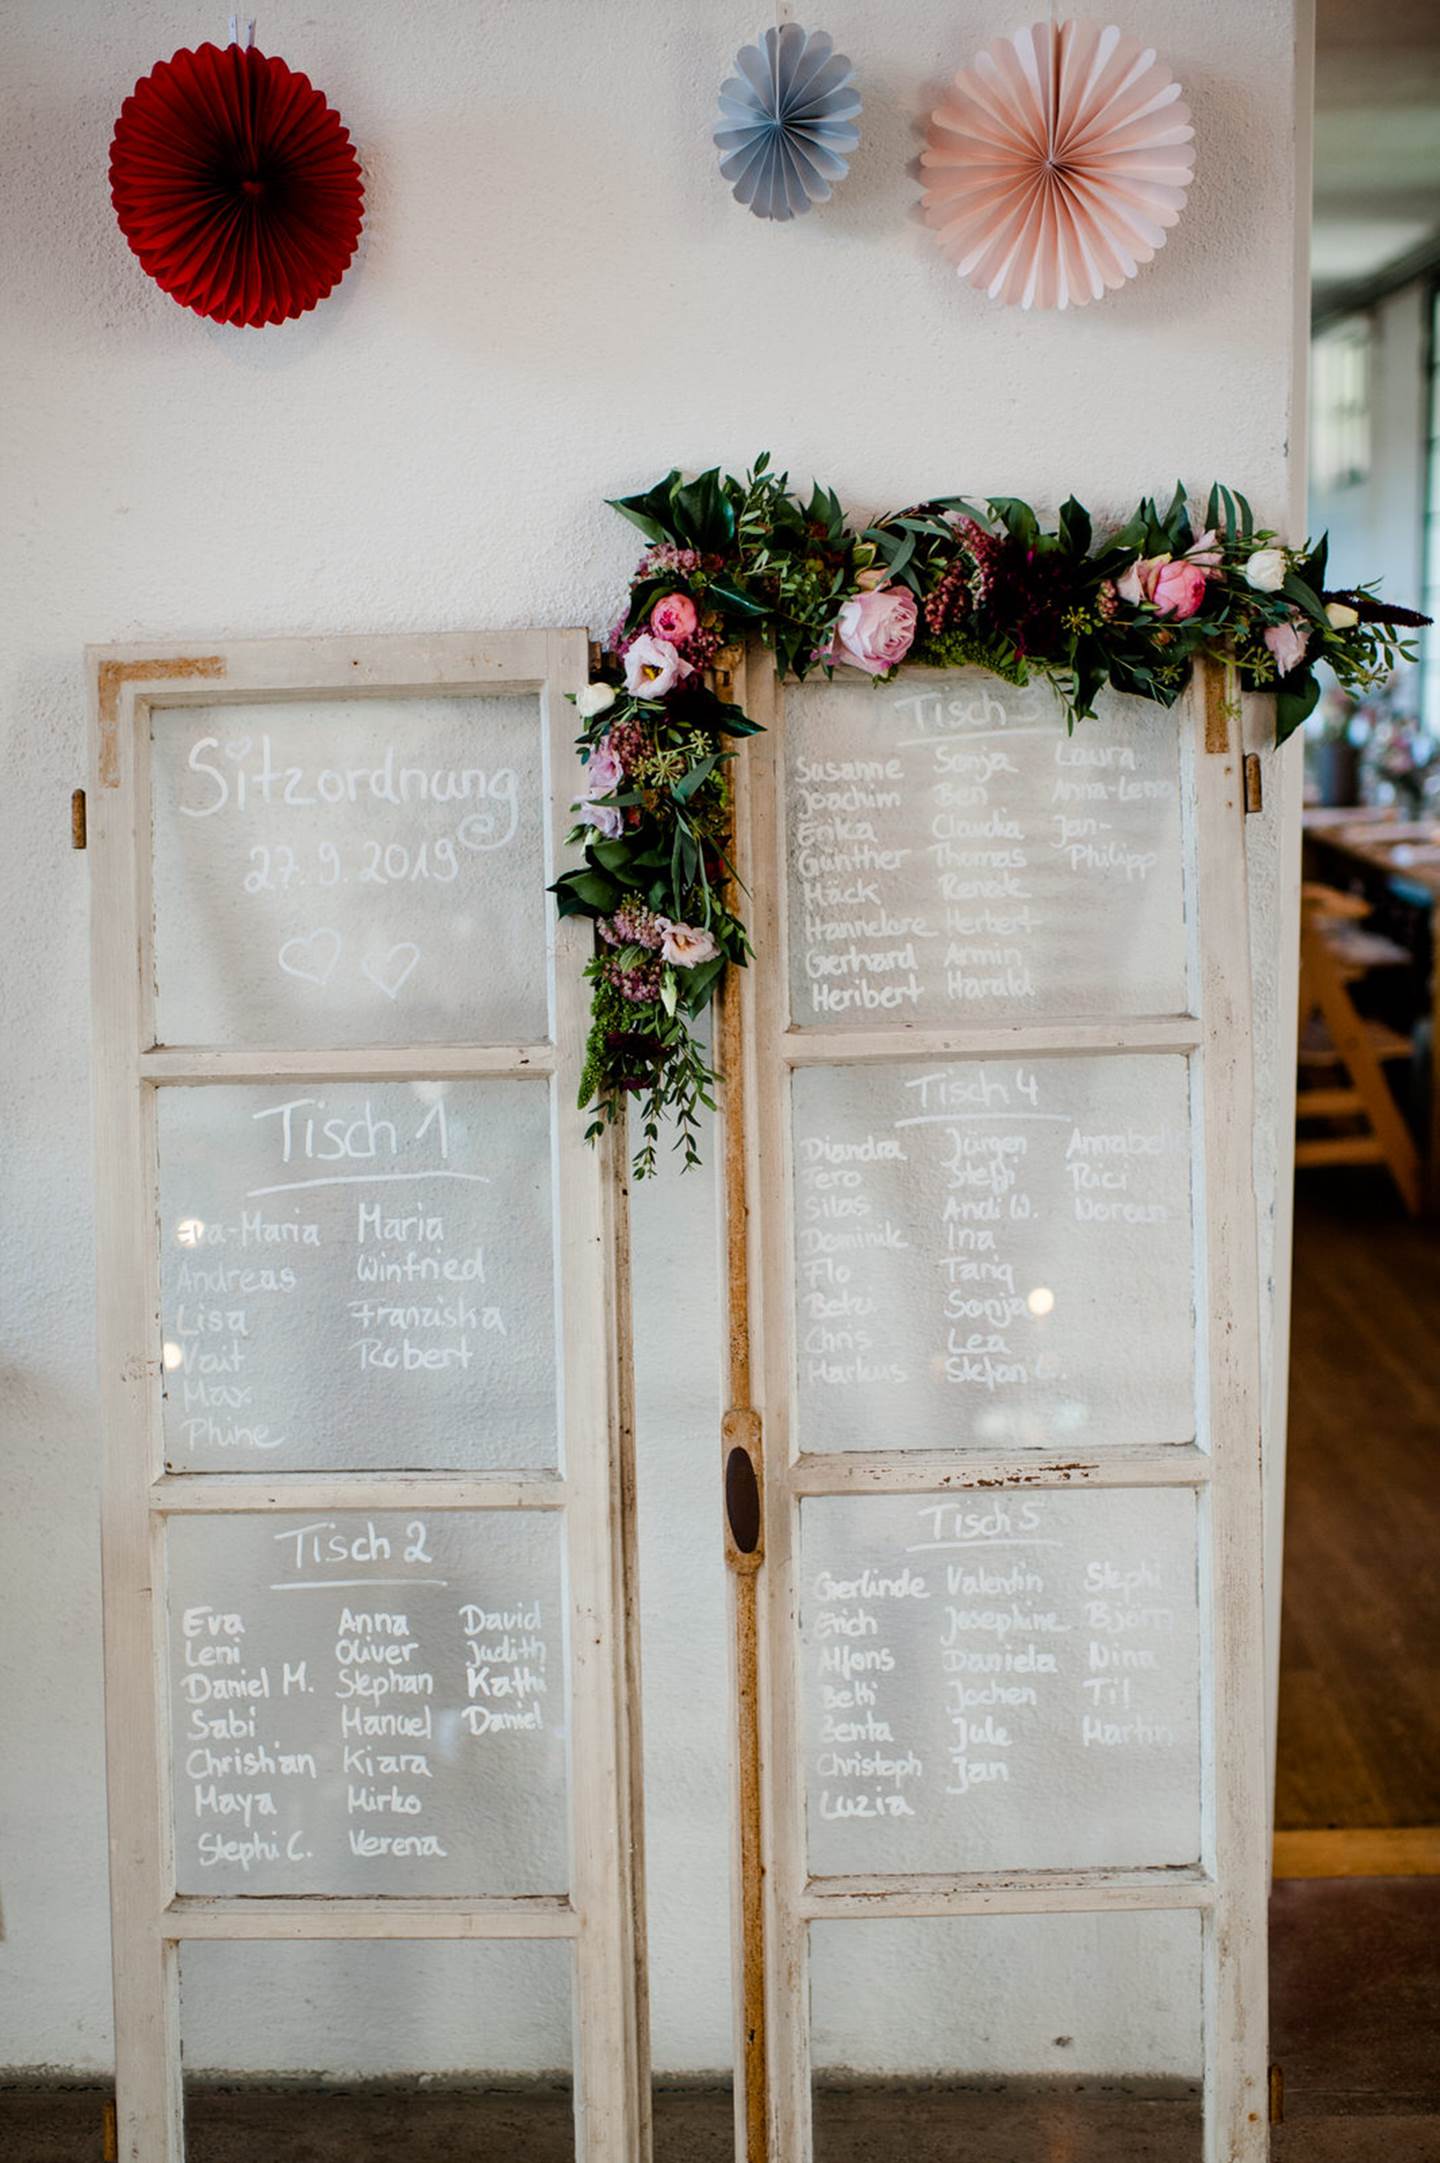 Sitzordnung
27.9.2019
Tisch 1
Eva-Maria Maria
Andreas Winfried
Lisa Franziska
Vait Robert
Max
Phine
Tisch 2
Eva Anna David
Leni Oliver Judith
Daniel M. Stephan Kathi
Sabi Manuel Daniel
Christian Kiara
Maya Mirko
Stephi C. Verena
Tisch 3
Susanne Sonja Laura
Joachim Ben Anna-Lena
Erika Claudia Jan-
Günther Thomas Philipp
Mäck Renate
Hannelore Herbert
Gerhard Armin
Heribert Harald
Tisch 4
Diandra Jürgen
Fero Steffi Rici
Silas Andi W. Noreen
Dominik Ina
Flo Tariq
Sonja
Chris Lea
Markus Stefan
Tisch 5
Gerlinde Valentin Stephi
Erich Josephine Björn
Alfons Daniela Nina
Betti Jochen Til
Zenta Jule Martin
Christoph Jan
Luzia